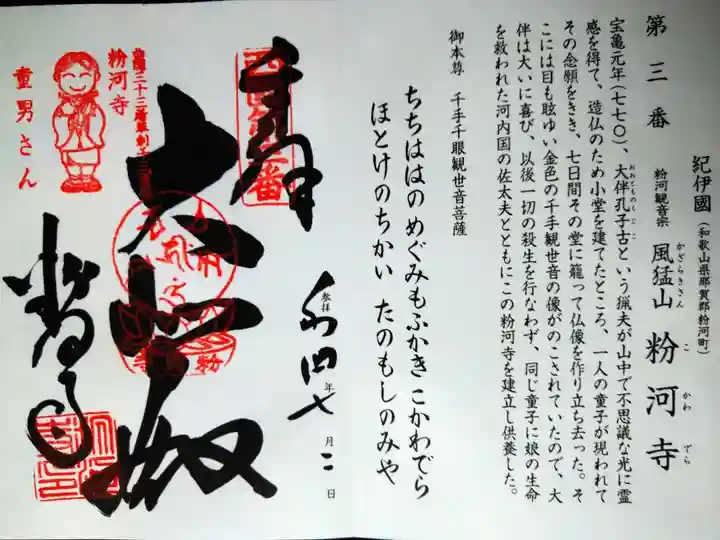 第三番
紀伊國（和歌山県那賀郡粉河町）
粉河観音宗 風猛山 粉河寺
かざらきさん
こかわでら
宝亀元年(七七〇)、大伴孔子古という猟夫が山中で不思議な光に霊
おおとものくじこ
感を得て、造仏のため小堂を建てたところ、一人の童子が現われて
その念願をきき、七日間その堂に籠って仏像を作り立ち去った。そ
こには目も眩ゆい金色の千手観世音の像がのこされていたので、大
伴は大いに喜び、以後一切の殺生を行なわず、同じ童子に娘の生命
を救われた河内国の佐太夫とともにこの粉河寺を建立し供養した。
御本尊 千手千眼観世音菩薩
ちちははの めぐみもふかき こかわでら
ほとけのちかい たのもしのみや
奉
参拝
年
月二日
大悲殿
粉河寺
童男さん